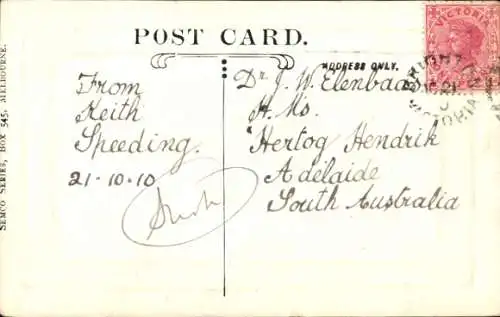 POST CARD.
ADDRESS ONLY.
VICTORIA
From
Keith
Speeding.
21-10-10
Dr. J. W. Elenbaas
H. Ms.
"Hertog Hendrik
Adelaide
South Australia
SEMCO SERIES, BOX 545, MELBOURNE.
BRIGHTON
VICTORIA